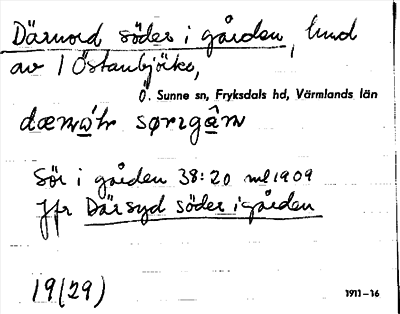 Därnord söder i gården, hmd
av 1 Östanbjörke,
Ö. Sunne sn, Fryksdals hd, Värmlands län
Sör i gården 38:20 ml 1909
Jfr Därsyd söder i gården
19(29)
1911–16